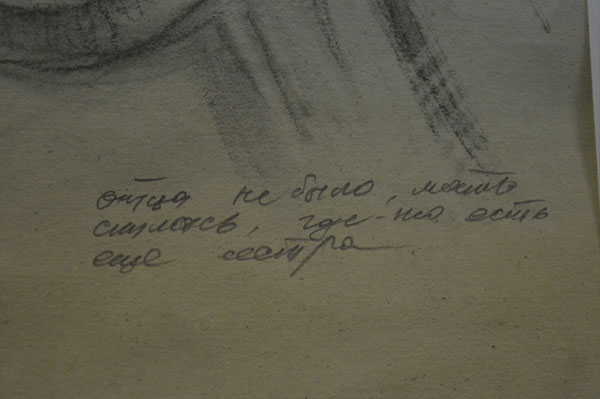 отца не было, мать
спилась, где-то есть
еще сестра